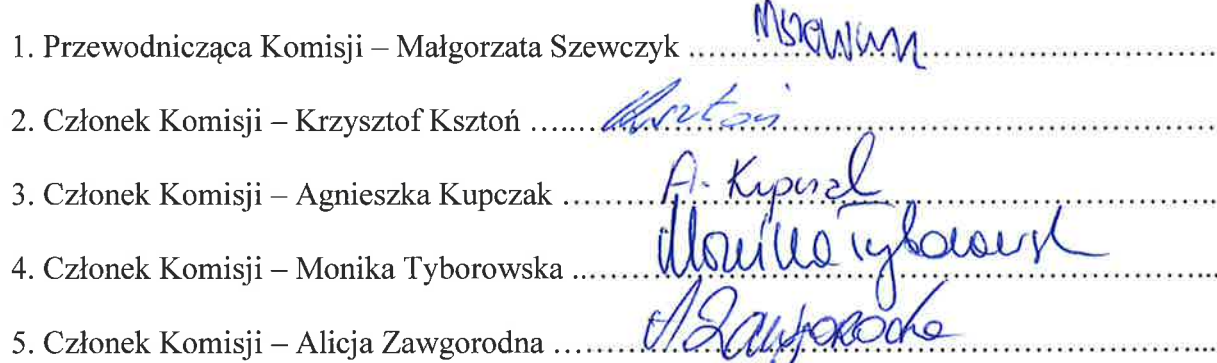 1. Przewodnicząca Komisji – Małgorzata Szewczyk ......
2. Członek Komisji – Krzysztof Ksztoń ...... Ksztoń
3. Członek Komisji – Agnieszka Kupczak ...... A. Kupczak
4. Członek Komisji – Monika Tyborowska ...... Monika Tyborowsk
5. Członek Komisji – Alicja Zawgorodna ...... A Zawgorodna